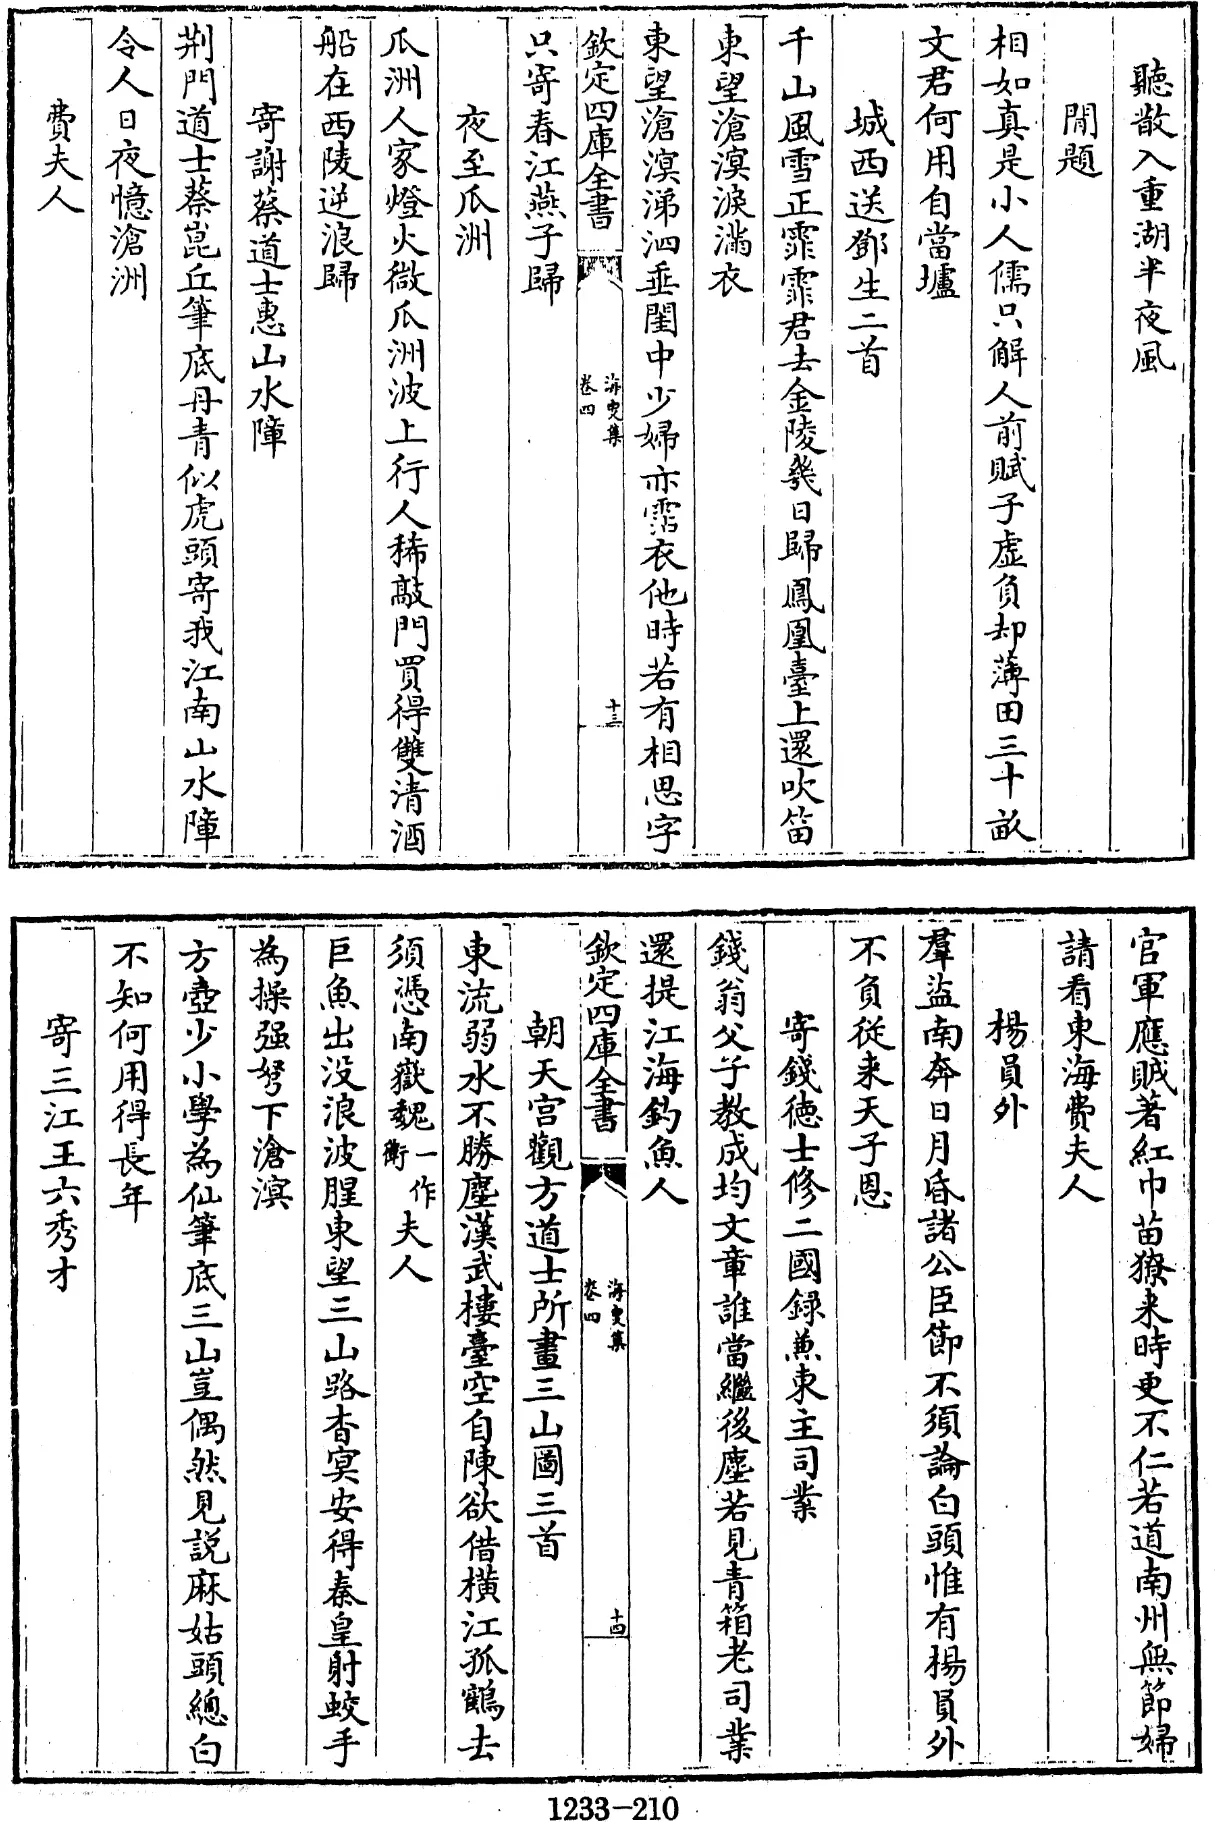 聽散入重湖半夜風
閒題
相如真是小人儒只解人前賦子虛負却薄田三十畝
文君何用自當壚
城西送鄧生二首
千山風雪正霏霏君去金陵幾日歸鳳凰臺上還吹笛
東望滄溟淚滿衣
東望滄溟涕泗垂閨中少婦亦霑衣他時若有相思字
欽定四庫全書
海叟集
卷四
十三
只寄春江燕子歸
夜至瓜洲
瓜洲人家燈火微瓜洲波上行人稀敲門買得雙清酒
船在西陵逆浪歸
寄謝蔡道士惠山水障
荆門道士蔡崑丘筆底丹青似虎頭寄我江南山水障
令人日夜憶滄洲
費夫人
官軍應賊著紅巾苗獠来時更不仁若道南州無節婦
請看東海費夫人
楊員外
羣盜南奔日月昏諸公臣節不須論白頭惟有楊員外
不負從来天子恩
寄錢徳士修二國録兼東主司業
錢翁父子教成均文章誰當繼後塵若見青箱老司業
還提江海釣魚人
欽定四庫全書
海叟集
卷四
十四
朝天宫觀方道士所畫三山圖三首
東流弱水不勝塵漢武樓臺空自陳欲借橫江孤鶴去
須憑南嶽魏一作衛夫人
巨魚出没浪波腥東望三山路杳冥安得秦皇射蛟手
為操强弩下滄溟
方壺少小學為仙筆底三山豈偶然見説麻姑頭總白
不知何用得長年
寄三江王六秀才
1233-210